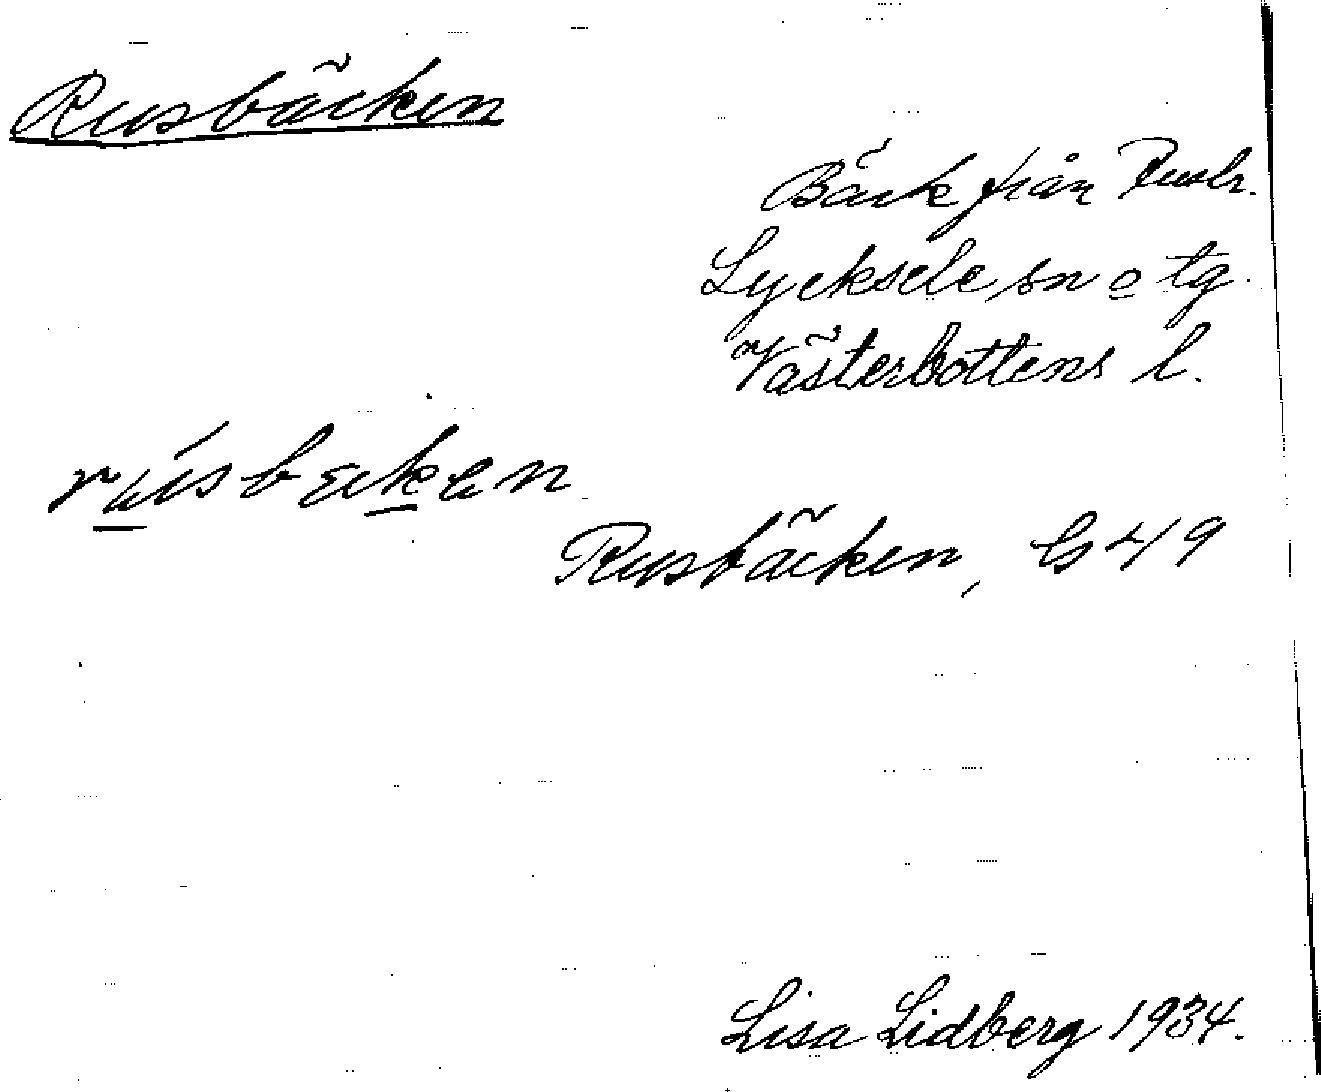 Rusbäcken
Bäck från Rustr.
Lycksele sn o tg.
Västerbottens l.
Rusbäcken, G 49
Lisa Lidberg 1934.